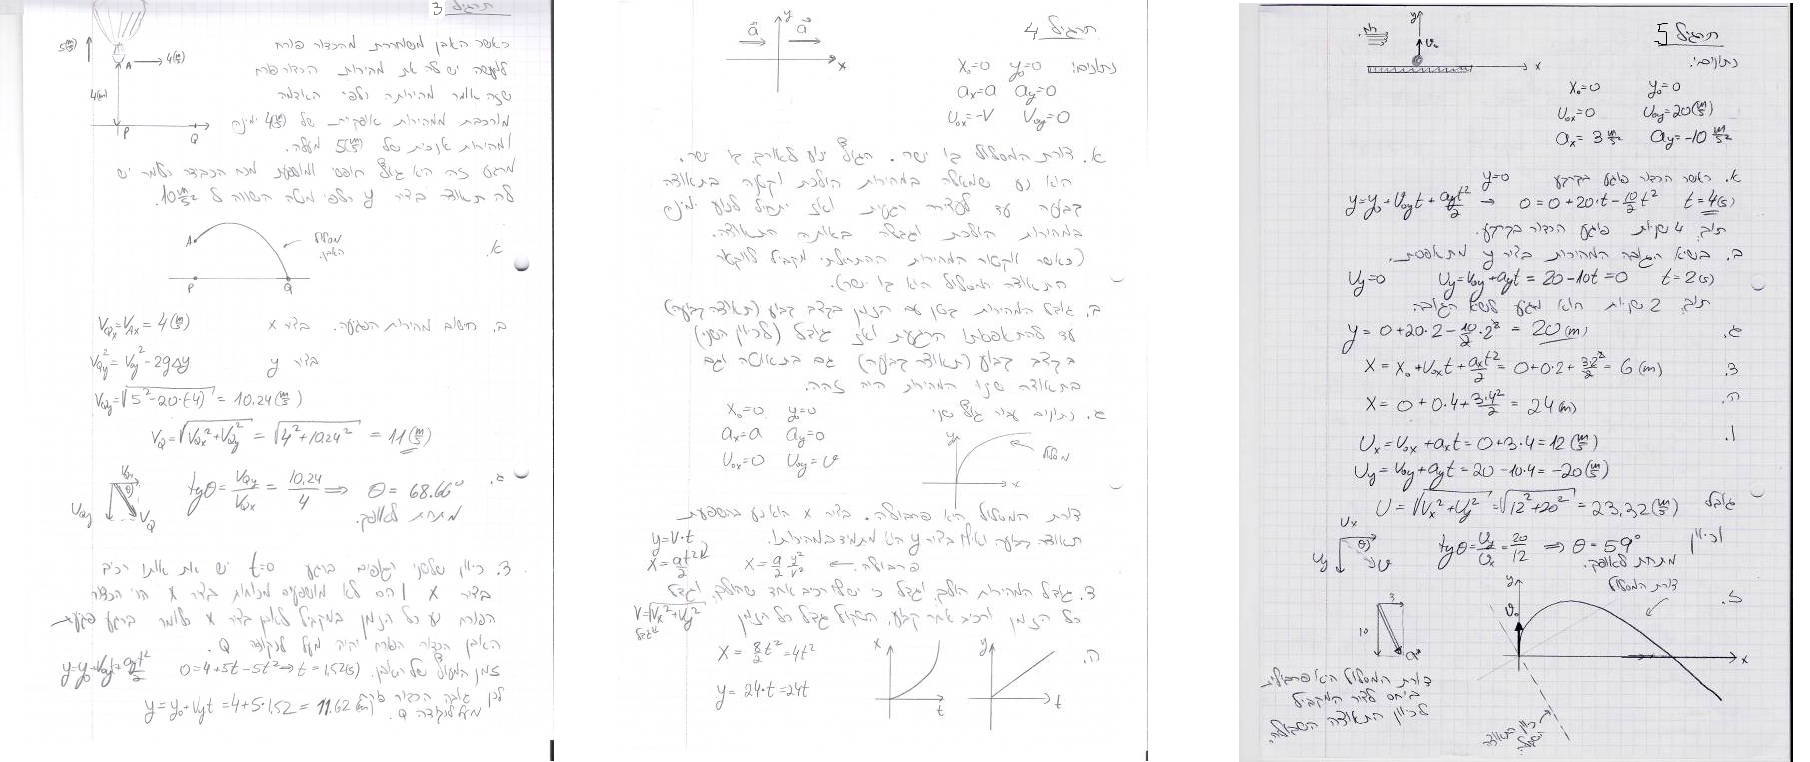 תרגיל 3
כאשר האבן משתחררת מהכדור פורח
יש לה את מהירות הכדור פורח
שזה אומר מהירותה כלפי האדמה
מורכבת ממהירות אופקית של 4(m/s) ימינה
ומהירות אנכית של 5(m/s) מעלה.
מרגע זה היא גוף חופשי ומושפעת מכח הכבידה כלומר יש
לה תאוצה בציר y כלפי מטה השווה ל 10 m/s²
5(m/s)
A
4(m/s)
4(m)
P Q
א.
A
מסלול
האבן
P Q
ב. חישוב מהירות הפגיעה. בציר x
V_Qx = V_Ax = 4(m/s)
בציר y
V_Qy² = V_0y² - 2gΔy
V_Qy = √(5² - 20·(-4)) = 10.24(m/s)
V_Q = √(V_Qx² + V_Qy²) = √(4² + 10.24²) = 11(m/s)
ג.
tgθ = V_Qy/V_Qx = 10.24/4 ⇒ θ = 68.66°
מתחת לאופק.
V_Qx
θ
V_Qy
V_Q
ד. כיוון שלשני הגופים ברגע t=0 יש את אותו רכיב
בציר x והם לא מושפעים מכוחות בציר x הרי הכדור
הפורח נע כל הזמן במקביל לאבן בציר x כלומר ברגע פגיעת
האבן הכדור הפורח יהיה מעל לנקודה Q
זמן המעוף של האבן. 0=4+5t-5t² ⇒ t=1.52(s) y=y₀+V_0y t+a_y t²/2
לכן גובה הכדור פורח y=y₀+V_y t=4+5·1.52=11.62(m)
מעל לנקודה Q.
תרגיל 4
נתונים: x₀=0 y₀=0
a_x=a a_y=0
U_0x=-V V_0y=0
y
a a
x
א. צורת המסלול קו ישר. הגוף ינוע לאורך קו ישר.
הוא נע שמאלה במהירות הולכת וקטנה בתאוצה
קבועה עד לעצירה רגעית ואז יתחיל לנוע ימינה
במהירות הולכת וגדלה באותה התאוצה.
(כאשר וקטור המהירות ההתחלתי מקביל לוקטור
התאוצה המסלול הוא קו ישר).
ב. גודל המהירות קטן עם הזמן בקצב קבוע (תאוצה קבועה)
עד להתאפסות הרגעית ואז גודל (לכיוון השני)
בקצב קבוע (תאוצה קבועה) גם בתאוטה וגם
בתאוצה שנוי המהירות היה זהה.
ג. נתונים עבור גוף שני
x₀=0 y₀=0
a_x=a a_y=0
U_0x=0 U_0y=v
y
מסלול
x
צורת המסלול היא פרבולה. בציר x הוא נע בהשפעת
תאוצה קבועה ואילו בציר y הוא מתמיד במהירותו.
y=v·t
x=at²/2
x=a/2 y²/v² ← פרבולה.
ד. גודל המהירות הולך וגדל כי יש לו רכיב אחד שהולך וגדל
כל הזמן ורכיב אחר קבוע, השקול גדל כל הזמן
V=√(V_x²+V_y²)
ה.
x=8/2 t²=4t²
y=24·t=24t
x
t
y
t
תרגיל 5
נתונים:
x₀=0 y₀=0
U_0x=0 U_0y=20(m/s)
a_x=3 m/s² a_y=-10 m/s²
רוח
y
v₀
x
א. כאשר הכדור פוגע בקרקע y=0
y=y₀+V_0y t+a_y t²/2 → 0=0+20·t-10/2 t² t=4(s)
תוך 4 שניות פוגע הכדור בקרקע.
ב. בשיא הגובה המהירות בציר y מתאפסת.
U_y=0 U_y=V_0y+a_y t=20-10t=0 t=2(s)
תוך 2 שניות הוא מגיע לשיא הגובה.
ג. y=0+20·2-10/2·2²=20(m)
ד. x=x₀+V_0x t+a_x t²/2=0+0·2+3·2²/2=6(m)
ה. x=0+0·4+3·4²/2=24(m)
ו. U_x=U_0x+a_x t=0+3·4=12(m/s)
U_y=V_0y+a_y t=20-10·4=-20(m/s)
גודל U=√(V_x²+V_y²)=√(12²+20²)=23.32(m/s)
וכיוון tgθ=U_y/U_x=20/12 ⇒ θ=59°
מתחת לאופק.
U_x
θ
U_y
U
ז.
צורת המסלול
y
v₀
x
3
10
a
צורת המסלול היא פרבולית
ביחס לציר המקביל
לכיוון התאוצה השקולה.
כיוון התאוצה
השקולה